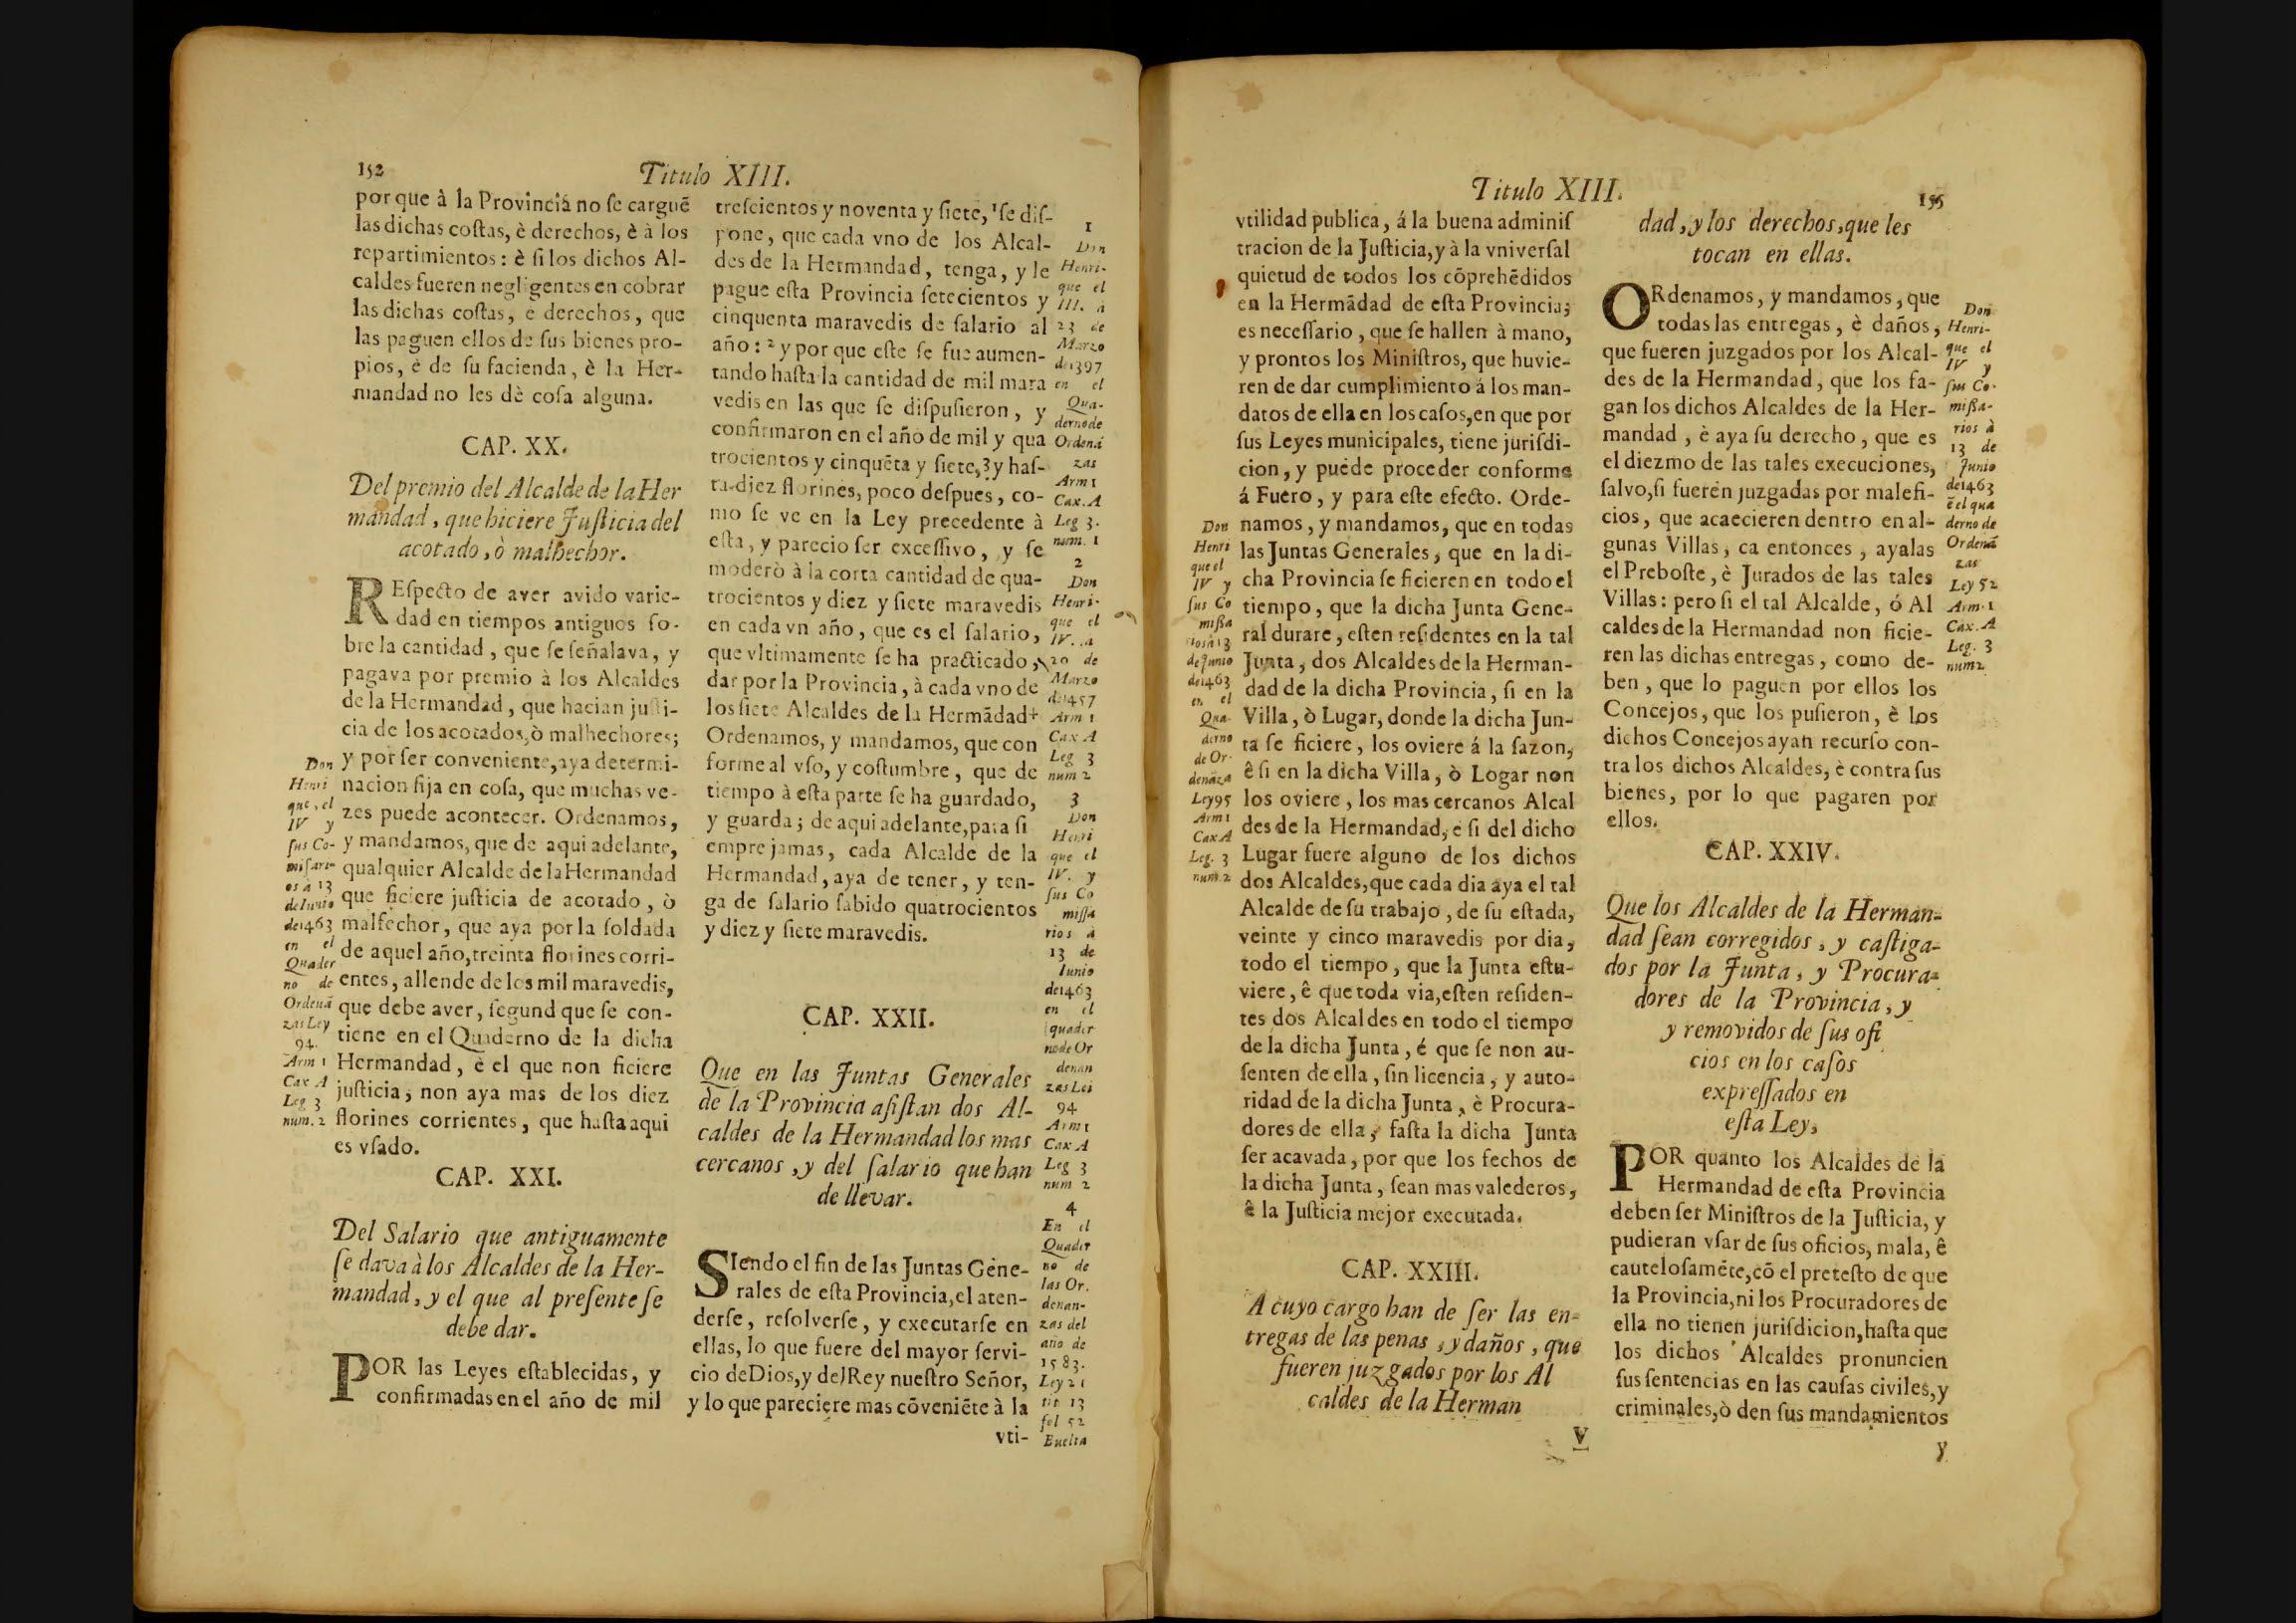 152
Titulo XIII.
porque à la Provincia no ſe carguẽ
las dichas coſtas, è derechos, è à los
repartimientos: è ſi los dichos Al-
caldes fueren negligentes en cobrar
las dichas coſtas, è derechos, que
las paguen ellos de ſus bienes pro-
pios, è de ſu facienda, è la Her-
mandad no les dè coſa alguna.
CAP. XX.
Del premio del Alcalde de la Her
mandad, que hiciere Juſticia del
acotado, ò malhechor.
REſpecto de aver avido varie-
dad en tiempos antiguos ſo-
bre la cantidad, que ſe ſeñalava, y
pagava por premio à los Alcaldes
de la Hermandad, que hacian juſti-
cia de los acotados, ò malhechores;
y por ſer conveniente, aya determi-
nacion fija en coſa, que muchas ve-
zes puede acontecer. Ordenamos,
y mandamos, que de aqui adelante,
qualquier Alcalde de la Hermandad
que ficiere juſticia de acotado, ò
malfechor, que aya por la ſoldada
de aquel año, treinta florines corri-
entes, allende de los mil maravedis,
que debe aver, ſegund que ſe con-
tiene en el Quaderno de la dicha
Hermandad, è el que non ficiere
juſticia, non aya mas de los diez
florines corrientes, que haſta aqui
es vſado.
Don
Henri
que, el
IV y
ſus Co-
miſari-
os à 13
de Iunio
de1463
en el
Quader
no de
Ordenã
zas Ley
94.
Arm 1
Cax A
Leg 3
num. 2
CAP. XXI.
Del Salario que antiguamente
ſe dava à los Alcaldes de la Her-
mandad, y el que al preſente ſe
debe dar.
POR las Leyes eſtablecidas, y
confirmadas en el año de mil
treſcientos y noventa y ſiete, 1 ſe diſ-
pone, que cada vno de los Alcal-
des de la Hermandad, tenga, y le
pague eſta Provincia ſetecientos y
cinquenta maravedis de ſalario al
año: 2 y por que eſte ſe fue aumen-
tando haſta la cantidad de mil mara
vedis en las que ſe diſpuſieron, y
confirmaron en el año de mil y qua
trocientos y cinquẽta y ſiete, 3 y haſ-
ta diez florines, poco deſpues, co-
mo ſe ve en la Ley precedente à
eſta, y parecio ſer exceſſivo, y ſe
moderò à la corta cantidad de qua-
trocientos y diez y ſiete maravedis
en cada vn año, que es el ſalario,
que vltimamente ſe ha practicado,
dar por la Provincia, à cada vno de
los ſiete Alcaldes de la Hermãdad 4
Ordenamos, y mandamos, que con
forme al vſo, y coſtumbre, que de
tiempo à eſta parte ſe ha guardado,
y guarda; de aqui adelante, para ſi
empre jamas, cada Alcalde de la
Hermandad, aya de tener, y ten-
ga de ſalario ſabido quatrocientos
y diez y ſiete maravedis.
1
Don
Henri-
que el
III. a
23 de
Marzo
de1397
en el
Qua-
derno de
Ordenã
zas
Arm 1
Cax. A
Leg 3.
num. 1
2
Don
Henri-
que el
IV. a
20 de
Marzo
de1457
Arm 1
Cax A
Leg 3
num 2
3
Don
Henri
que el
IV. y
ſus Co
miſſa
rios à
13 de
Iunio
de1463
en el
quader
no de Or
denan
zas Lei
94
Arm 1
Cax A
Leg 3
num 2
4
En el
Quader
no de
las Or.
denan-
zas del
año de
1583.
Ley 21
tit 13
fol 52
Buelta
CAP. XXII.
Que en las Juntas Generales
de la Provincia aſiſtan dos Al-
caldes de la Hermandad los mas
cercanos, y del ſalario que han
de llevar.
SIendo el fin de las Juntas Gene-
rales de eſta Provincia, el aten-
derſe, reſolverſe, y executarſe en
ellas, lo que fuere del mayor ſervi-
cio de Dios, y del Rey nueſtro Señor,
y lo que pareciere mas cõveniẽte à la
vti-
Titulo XIII.
155
vtilidad publica, á la buena adminiſ
tracion de la Juſticia, y à la vniverſal
quietud de todos los cõprehẽdidos
en la Hermãdad de eſta Provincia;
es neceſſario, que ſe hallen à mano,
y prontos los Miniſtros, que huvie-
ren de dar cumplimiento á los man-
datos de ella en los caſos, en que por
ſus Leyes municipales, tiene juriſdi-
cion, y puede proceder conforme
á Fuero, y para eſte efecto. Orde-
namos, y mandamos, que en todas
las Juntas Generales, que en la di-
cha Provincia ſe ficieren en todo el
tiempo, que la dicha Junta Gene-
ral durare, eſten reſidentes en la tal
Junta, dos Alcaldes de la Herman-
dad de la dicha Provincia, ſi en la
Villa, ò Lugar, donde la dicha Jun-
ta ſe ficiere, los oviere á la ſazon,
ê ſi en la dicha Villa, ò Logar non
los oviere, los mas cercanos Alcal
des de la Hermandad, e ſi del dicho
Lugar fuere alguno de los dichos
dos Alcaldes, que cada dia aya el tal
Alcalde de ſu trabajo, de ſu eſtada,
veinte y cinco maravedis por dia,
todo el tiempo, que la Junta eſtu-
viere, ê que toda via, eſten reſiden-
tes dos Alcaldes en todo el tiempo
de la dicha Junta, é que ſe non au-
ſenten de ella, ſin licencia, y auto-
ridad de la dicha Junta, è Procura-
dores de ella, faſta la dicha Junta
ſer acavada, por que los fechos de
la dicha Junta, ſean mas valederos,
ê la Juſticia mejor executada.
Don
Henri
que el
IV y
ſus Co
miſſa
rios à 13
de Junio
de1463
en el
Qua-
derno
de Or-
denãza
Ley95
Arm 1
Cax A
Leg. 3
num. 2
CAP. XXIII.
A cuyo cargo han de ſer las en-
tregas de las penas, y daños, que
fueren juzgados por los Al
caldes de la Herman
V
dad, y los derechos, que les
tocan en ellas.
ORdenamos, y mandamos, que
todas las entregas, è daños,
que fueren juzgados por los Alcal-
des de la Hermandad, que los fa-
gan los dichos Alcaldes de la Her-
mandad, è aya ſu derecho, que es
el diezmo de las tales execuciones,
ſalvo, ſi fueren juzgadas por malefi-
cios, que acaecieren dentro en al-
gunas Villas, ca entonces, ayalas
el Preboſte, è Jurados de las tales
Villas: pero ſi el tal Alcalde, ó Al
caldes de la Hermandad non ficie-
ren las dichas entregas, como de-
ben, que lo paguen por ellos los
Concejos, que los puſieron, è los
dichos Concejos ayan recurſo con-
tra los dichos Alcaldes, è contra ſus
bienes, por lo que pagaren por
ellos.
Don
Henri-
que el
IV y
ſus Co-
miſſa-
rios à
13 de
Junio
de1463
ẽ el qua
derno de
Ordenã
zas
Ley 52
Arm. 1
Cax. A
Leg. 3
num 2
CAP. XXIV.
Que los Alcaldes de la Herman-
dad ſean corregidos, y caſtiga-
dos por la Junta, y Procura-
dores de la Provincia, y
y removidos de ſus ofi
cios en los caſos
expreſſados en
eſta Ley,
POR quanto los Alcaldes de la
Hermandad de eſta Provincia
deben ſer Miniſtros de la Juſticia, y
pudieran vſar de ſus oficios, mala, ê
cauteloſamẽte, cõ el preteſto de que
la Provincia, ni los Procuradores de
ella no tienen juriſdicion, haſta que
los dichos Alcaldes pronuncien
ſus ſentencias en las cauſas civiles, y
criminales, ò den ſus mandamientos
y